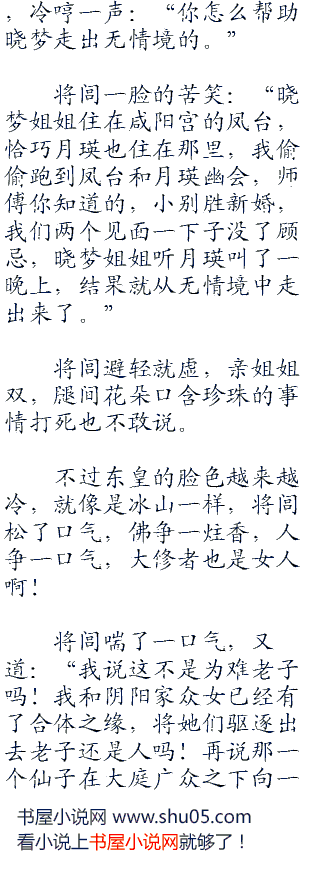 ，冷哼一声：“你怎么帮助
晓梦走出无情境的。”
将闾一脸的苦笑：“晓
梦姐姐住在咸阳宫的凤台，
恰巧月瑛也住在那里，我偷
偷跑到凤台和月瑛幽会，师
傅你知道的，小别胜新婚，
我们两个见面一下子没了顾
忌，晓梦姐姐听月瑛叫了一
晚上，结果就从无情境中走
出来了。”
将闾避轻就虚，亲姐姐
双，腿间花朵口含珍珠的事
情打死也不敢说。
不过东皇的脸色越来越
冷，就像是冰山一样，将闾
松了口气，佛争一炷香，人
争一口气，大修者也是女人
啊！
将闾喘了一口气，又
道：“我说这不是为难老子
吗！我和阴阳家众女已经有
了合体之缘，将她们驱逐出
去老子还是人吗！再说那一
个仙子在大庭广众之下向一
书屋小说网 www.shu05.com
看小说上书屋小说网就够了！